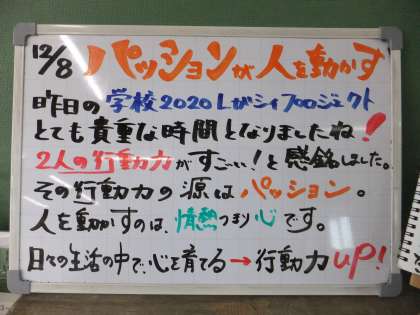 12/8 パッションが人を動かす
昨日の学校2020レガシィプロジェクト
とても貴重な時間となりましたね!
2人の行動力がすごい!と感銘しました。
その行動力の源はパッション。
人を動かすのは、情熱つまり心です。
日々の生活の中で、心を育てる→行動力UP!